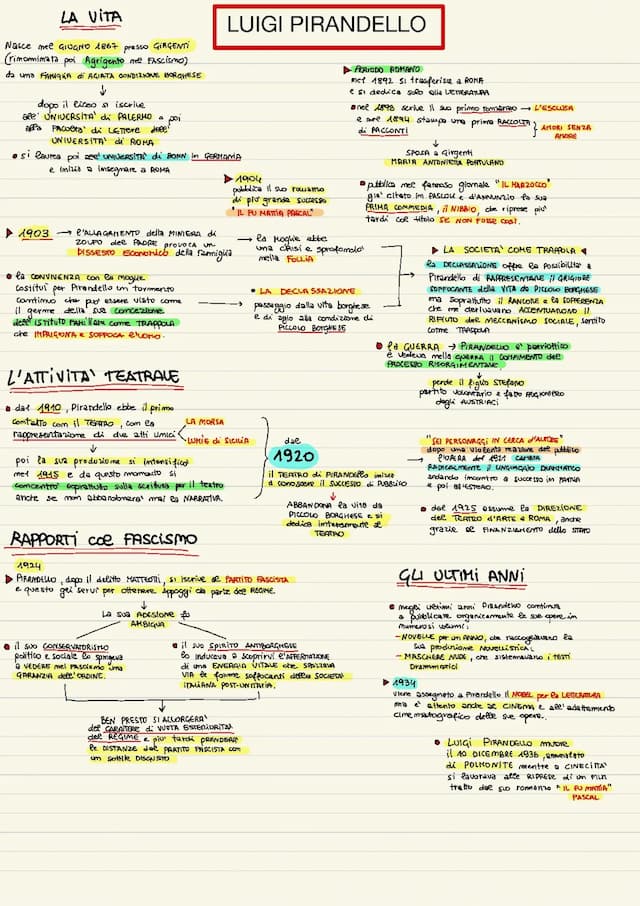 LUIGI PIRANDELLO
LA VITA
Nasce nel GIUGNO 1867 presso GIRGENTI
(rinominata poi Agrigento nel FASCISMO)
da una FAMIGLIA di AGIATA CONDIZIONE BORGHESE
dopo il liceo si iscrive
all'UNIVERSITÀ di PALERMO e poi
alla FACOLTÀ di LETTERE dell'
UNIVERSITÀ di ROMA
si laurea poi all'UNIVERSITÀ di BONN in GERMANIA
e iniziò a insegnare a ROMA
PERIODO ROMANO
nel 1892 si trasferisce a ROMA
e si dedica solo alla LETTERATURA
nel 1893 scrive il suo primo romanzo → L'ESCLUSA
e nel 1894 stampa una prima RACCOLTA
di RACCONTI
AMORI SENZA
AMORE
SPOSA a Girgenti
MARIA ANTONIETTA PORTULANO
pubblica nel famoso giornale "IL MARZOCCO"
già citato in PASCOLI e D'ANNUNZIO la sua
PRIMA COMMEDIA, il NIBBIO, che riprese più
tardi col titolo SE NON FOSSE COSÌ.
1904
pubblica il suo romanzo
di più grande successo
"IL FU MATTIA PASCAL"
1903 → l'ALLAGAMENTO della MINIERA di
ZOLFO del PADRE provoca un
DISSESTO ECONOMICO della famiglia
la moglie ebbe
una CRISI e sprofondò
nella FOLLIA
la CONVIVENZA con la moglie
costituì per Pirandello un tormento
continuo che può essere visto come
il germe della sua CONCEZIONE
dell'ISTITUTO FAMILIARE COME TRAPPOLA
che IMPRIGIONA e SOFFOCA l'uomo.
LA DECLASSAZIONE
passaggio dalla vita borghese
e di agio alla condizione di
PICCOLO BORGHESE
LA SOCIETÀ COME TRAPPOLA
la DECLASSAZIONE offre la POSSIBILITÀ a
Pirandello di RAPPRESENTARE il GRIGIORE
SOFFOCANTE della VITA da PICCOLO BORGHESE
ma soprattutto il RANCORE e la SOFFERENZA
che ne derivavano ACCENTUARONO il
RIFIUTO del MECCANISMO SOCIALE, sentito
come TRAPPOLA
la GUERRA → PIRANDELLO è patriottico
e vedeva nella GUERRA il COMPIMENTO del
PROCESSO RISORGIMENTALE
perde il figlio STEFANO
partito volontario e fatto PRIGIONIERO
dagli AUSTRIACI
L'ATTIVITÀ TEATRALE
dal 1910, Pirandello ebbe il primo
contatto con il TEATRO, con la
rappresentazione di due atti unici
LA MORSA
LUMIE di SICILIA
poi la sua produzione si intensificò
nel 1915 e da questo momento si
concentrò soprattutto sulla scrittura per il teatro
anche se non abbandonerà mai la NARRATIVA
dal
1920
il TEATRO di PIRANDELLO iniziò
a conoscere il SUCCESSO di PUBBLICO
ABBANDONA la vita da
PICCOLO BORGHESE e si
dedica interamente al
TEATRO
"SEI PERSONAGGI IN CERCA D'AUTORE"
dopo una violenta reazione del pubblico
l'OPERA del 1921 CAMBIA
RADICALMENTE il LINGUAGGIO DRAMMATICO
andando incontro a SUCCESSO in PATRIA
e poi all'ESTERO.
dal 1925 assume la DIREZIONE
del TEATRO D'ARTE a ROMA, anche
grazie al FINANZIAMENTO dello STATO
RAPPORTI col FASCISMO
1924
PIRANDELLO, dopo il delitto MATTEOTTI, si iscrive al PARTITO FASCISTA
e questo gli servì per ottenere appoggi da parte del REGIME.
la sua ADESIONE fu
AMBIGUA
il suo CONSERVATORISMO
politico e sociale lo spingeva
a VEDERE nel FASCISMO una
GARANZIA dell'ORDINE.
il suo SPIRITO ANTIBORGHESE
lo induceva a scoprirvi l'AFFERMAZIONE
di una ENERGIA VITALE che SPAZZAVA
VIA le forme soffocanti della SOCIETÀ
ITALIANA POST-UNITARIA.
BEN PRESTO SI ACCORGERÀ
del CARATTERE di VUOTA ESTERIORITÀ
del REGIME e più tardi PRENDERÀ
le DISTANZE dal PARTITO FASCISTA con
un SOTTILE DISGUSTO
GLI ULTIMI ANNI
negli ultimi anni Pirandello continua
a pubblicare organicamente le sue opere in
numerosi volumi:
- NOVELLE per un ANNO, che raccoglievano la
sua produzione NOVELLISTICA;
- MASCHERE NUDE, che sistemavano i TESTI
Drammatici
1934
viene assegnato a Pirandello il NOBEL per la LETTERATURA
ma è attento anche al CINEMA e all'adattamento
cinematografico delle sue opere.
LUIGI PIRANDELLO MUORE
il 10 DICEMBRE 1936, ammalato
di POLMONITE mentre a CINECITTÀ
si lavorava alle RIPRESE di un FILM
tratto dal suo romanzo "IL FU MATTIA
PASCAL